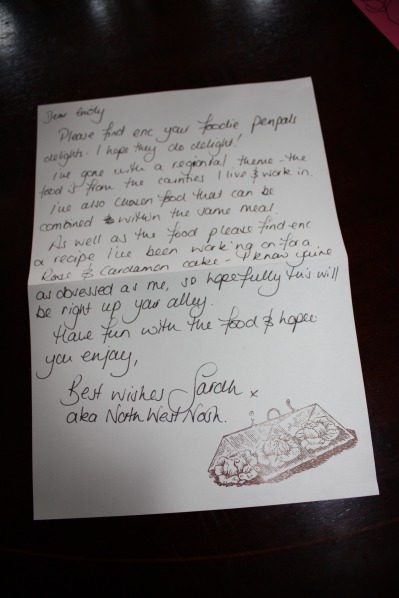 Dear Emily
Please find enc your foodie penpals
delights. I hope they do delight!
I've gone with a regional theme - the
food is from the counties I live & work in.
I've also chosen food that can be
combined within the same meal.
As well as the food please find enc
a recipe I've been working on for a
Rose & Cardamon cake - I know you're
as obsessed as me, so hopefully this will
be right up your alley.
Have fun with the food & hope
you enjoy,
Best wishes Sarah x
aka North West Nosh.